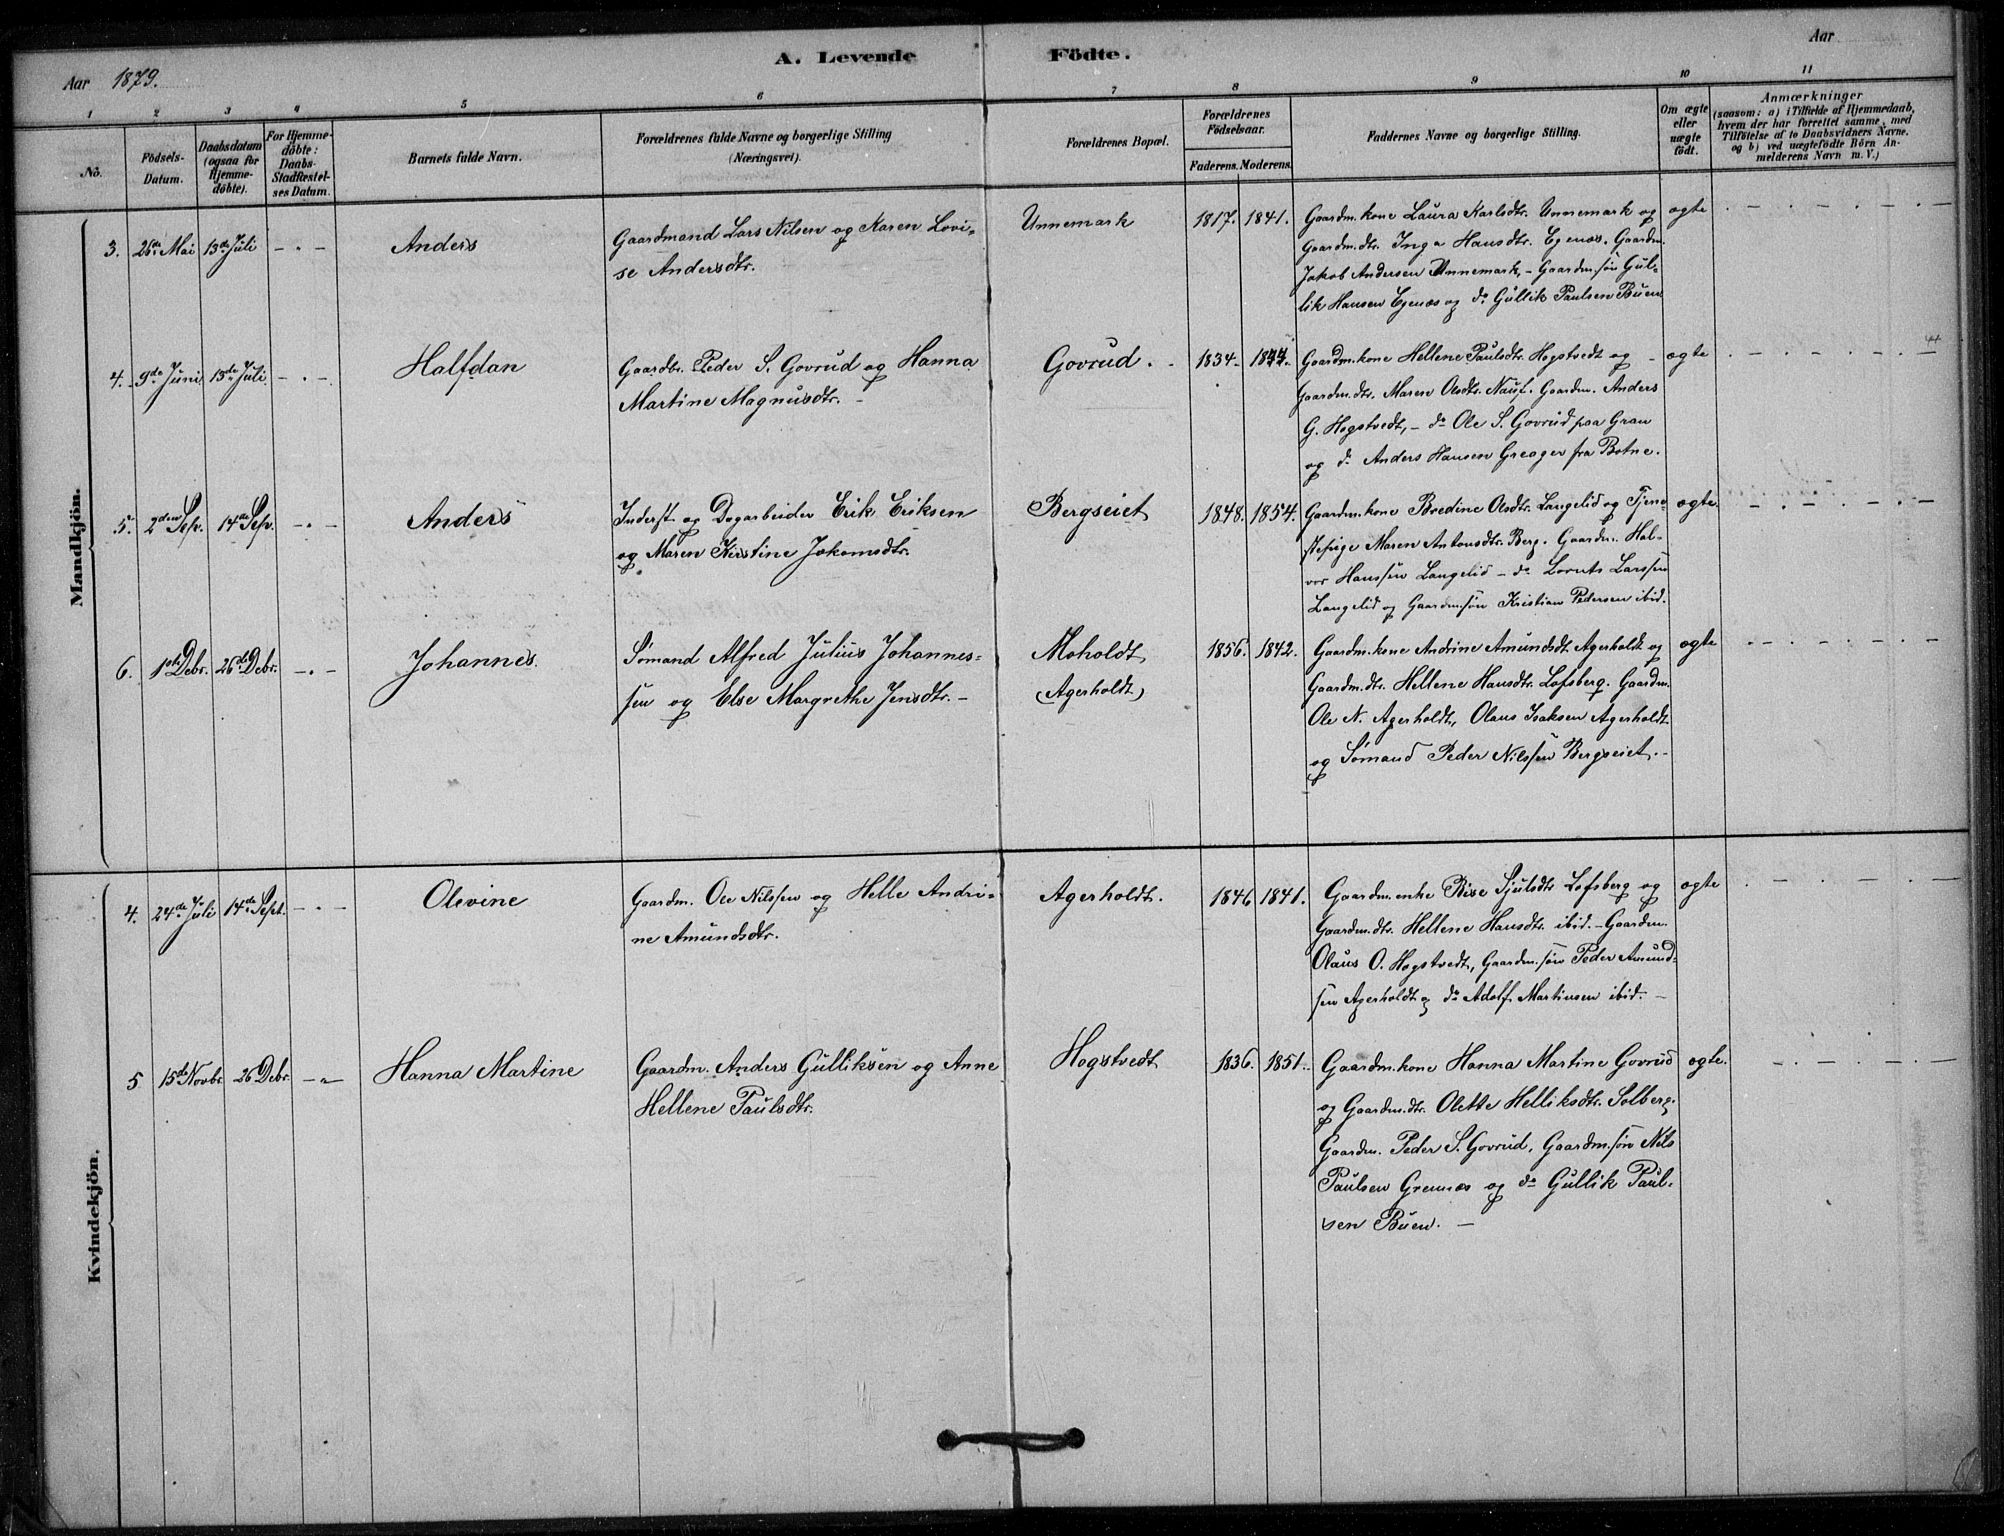 A. Levende Födte.
Aar 1879.
Aar
1 2 3 4 5 6 7 8 9 10 11
No.
Födsels-Datum.
Daabsdatum (ogsaa for Hjemme-döbte).
For Hjemme-döbte: Daabs-Stadfæstel-ses Datum.
Barnets fulde Navn.
Forældrenes fulde Navne og borgerlige Stilling (Næringsvei).
Forældrenes Bopæl.
Forældrenes Födselsaar.
Faderens. Moderens.
Faddernes Navne og borgerlige Stilling.
Om ægte eller uægte födt.
Anmærkninger
(saasom: a) i Tilfælde af Hjemmedaab,
hvem der har forrettet samme, med
Tilföielse af to Daabsvidners Navne,
og b) ved uægtefödte Börn An-
melderens Navn m. V.)
Mandkjön.
3. 26de Mai 13de Juli - " - Anders
Gaardmand Lars Nilsen og Karen Lovi-
se Andersdtr.
Unnemark 1817. 1841.
Gaardm.kone Laura Karlsdtr. Unnemark og
Gaardm.dtr. Inga Hansdtr. Egenæs. Gaardm.
Jakob Andersen Unnemark, - Gaardm.søn Gul-
lik Hansen Egenæs og do Gullik Paulsen Buen
ægte
4. 9de Juni 13de Juli - " - Halfdan
Gaardbr. Peder S. Govrud og Hanna
Martine Magnusdtr. -
Govrud. 1834. 1844.
Gaardm.kone Hellene Paulsdtr. Hogstvedt og -
Gaardm.dtr. Maren Olsdtr. Nauf. Gaardm. Anders
G. Hogstvedt, - do Ole S. Govrud paa Gran
og do Anders Hansen Greager fra Botne.
ægte
5. 2den Sep. 14de Sep. - " - Anders
Inderst og Dagarbeider Erik Eriksen
og Maren Kirstine Jokomsdtr.
Bergseiet 1848. 1854.
Gaardm.kone Bredine Olsdtr. Langelid og Tjene-
stepige Maren Antonsdtr. Berg. Gaardm. Hal-
vor Hanssen Langelid - do Lornts Larssen
Langelid og Gaardm.søn Kristian Pedersen ibid.
ægte.
6. 1ste Debr. 26de Debr. - " - Johannes.
Sømand Alfred Julius Johannes-
sen og Else Margrethe Jensdtr. -
Moholdt
(Agerholdt)
1856. 1842.
Gaardm.kone Andrine Amundsdt. Agerholdt og
Gaardm.dtr. Hellene Hansdtr. Lofsberg. Gaardm.
Ole N. Agerholdt, Olaus Isaksen Agerholdt
og Sømand Peder Nilssen Bergseiet. -
ægte
Kvindekjön.
4. 24de Juli 14de Sept. - " - Olevine
Gaardm. Ole Nilssen og Helle Andri-
ne Amundsdtr.
Agerholdt. 1846 1841.
Gaardm.enke Sjulsdtr. Lofsberg og
Gaardm.dtr. Hellene Hansdtr. ibid. - Gaardm.
Olaus O. Hogstvedt, Gaardm.søn Peder Amund-
sen Agerholdt og do Adolf Martinsen ibid. -
ægte
5 15de Novbr. 26 Debr. - " - Hanna Martine
Gaardm. Anders Gulliksen og Anne
Hellene Paulsdtr.
Hogstvedt 1836. 1851.
Gaardm.kone Hanna Martine Govrud
og Gaardm.dtr. Olette Helliksdtr. Solberg.
Gaardm. Peder S. Govrud, Gaardm.søn Nils
Paulsen Grennæs og do Gullik Paul-
sen Buen. -
ægte.